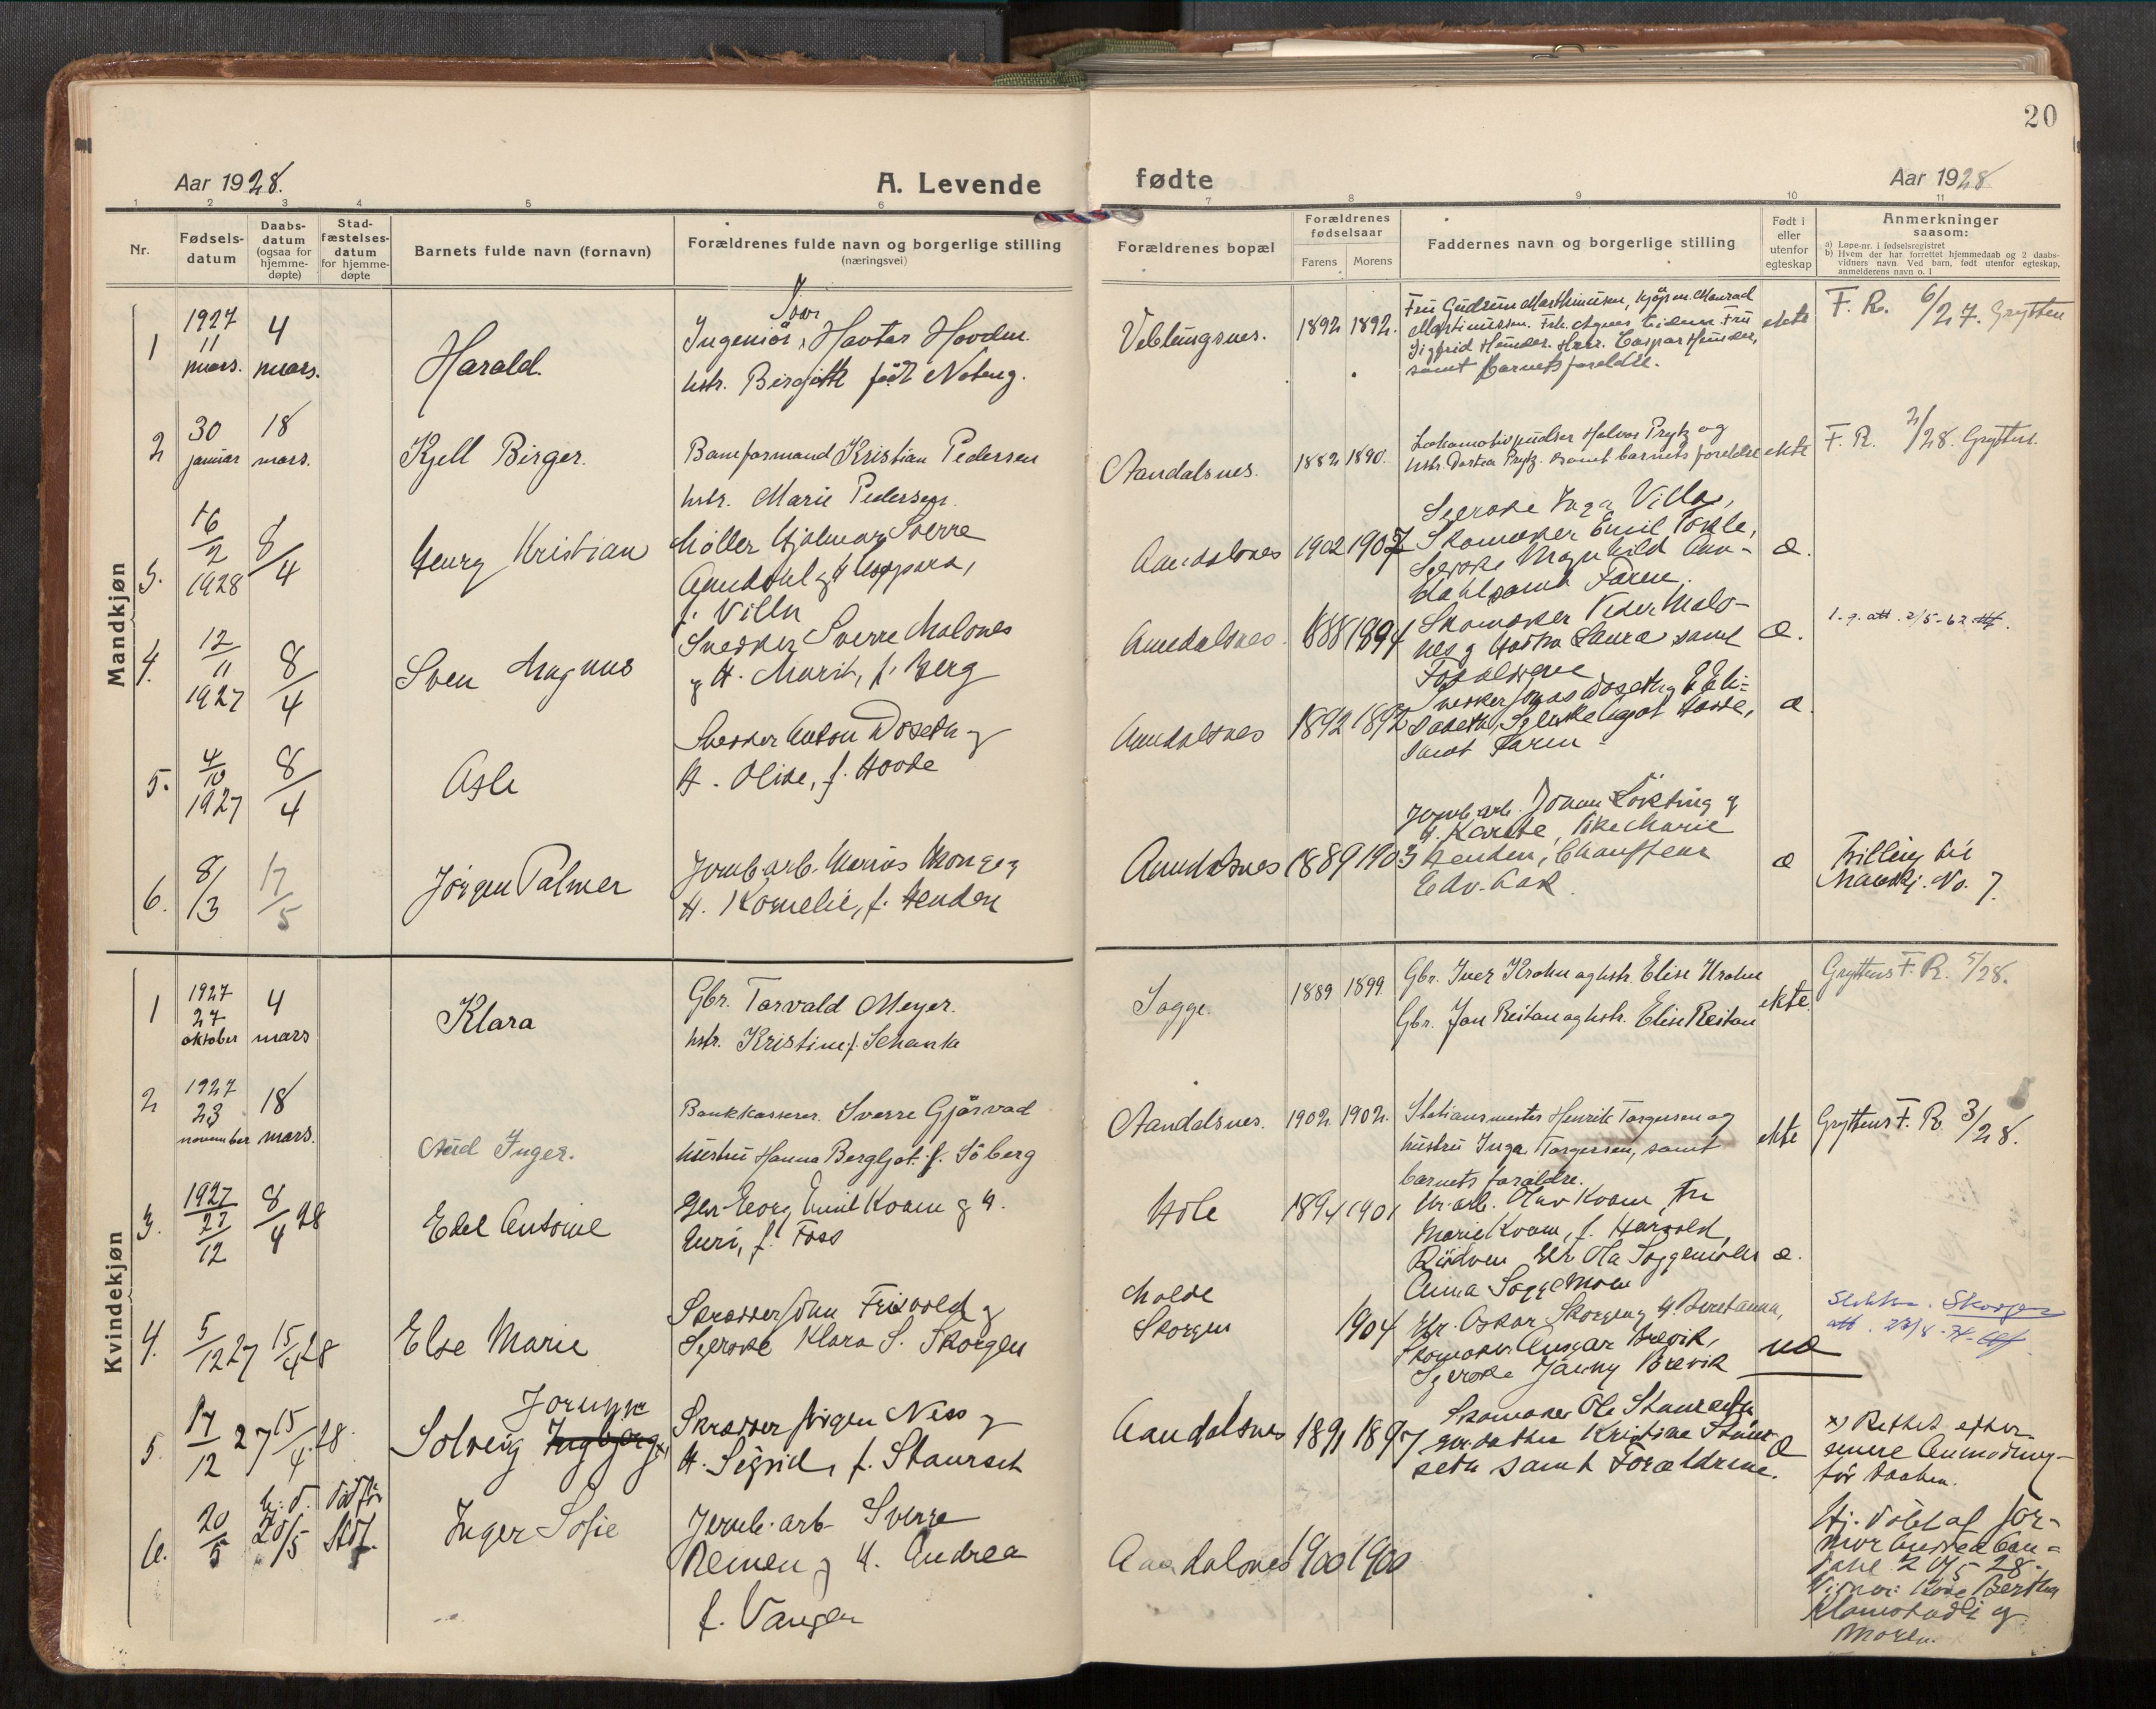 20
Aar 1928.
A. Levende
fødte
Aar 1928
1 2 3 4 5 6 7 8 9 10 11
Nr.
Fødsels-
datum
Daabs-
datum
(ogsaa for
hjemme-
døpte)
Stad-
fæstelses-
datum
for hjemme-
døpte
Barnets fulde navn (fornavn)
Forældrenes fulde navn og borgerlige stilling
(næringsvei)
Forældrenes bopæl
Forældrenes
fødselsaar
Farens Morens
Faddernes navn og borgerlige stilling
Født i
eller
utenfor
egteskap
Anmerkninger
saasom:
a) Løpe-nr. i fødselsregistret
b) Hvem der har forrettet hjemmedaab og 2 daabs-
vidners navn. Ved barn, født utenfor egteskap,
anmelderens navn o. l
Mandkjøn
1
1927
11
mars.
4
mars.
Harald.
Ivar
Ingeniør, Havtor Hovden.
hstr. Birgitte født Noteng.
Veblungsnes.
1892 1892.
Fru Gudrun Marthinusen, kjøpm. Monrad
Martinussen. Frk. Agnes Eidem. Fru
Sigfrid Heinder. Herr. Caspar Heinder,
samt barnets foreldre.
ekte
F. R. 6/27. Grytten
2
30
januar
18
mars.
Kjell Birger.
Baneformand Kristian Pedersen
hstr. Marie Pedersen.
Aandalsnes.
1882 1890.
Lokomotivpudser Halvor Prytz og
hstr. Dortea Prytz. samt barnets foreldre
ekte
F. R. 2/28. Grytten.
3.
16
2
1928
8/4
Henry Kristian
Møller Hjalmar Sverre
Aandahl og H.
f. Villa
Aandalsnes
1902 1907
Syerske Inga Villa,
Skomaker Emil Tokle,
Syerske Magnhild Aan-
dahl samt Faren.
æ.
4.
12
11
1927
8/4
Sven Magnus
Snedker Sverre Malones
og H. Marit, f. Berg
Aandalsnes.
1888 1894
Skomaker Peder Malo-
nes og Hustru Laura samt
Forældrene
æ.
1.g. att. 2/5-62
5.
4
10
1927
8/4
Asle
Snedker Anton Voseth og
H. Olise, f. Hovde
Aandalsnes
1892 1892
Snedker Jonas Voseth, E Eli-
sabeth, Syerske Agot Hovde,
samt Faren
æ
6.
8/3
17/5
Jørgen Palmer
Jernb.arb. Marius Monge og
H. Kornelie, f. Henden
Aandalsnes
1889 1903
Jernb.arb. Johan Løkting og
H. Karete, Pike Marie
Henden, Chauffeur
Edv. Aak.
æ
Tvilling til
Mandkj. No. 7.
Kvindekjøn
1
1927
27
oktober
4
mars
Klara
Gbr. Torvald Meyer.
hstr. Kristine f. Schanke
Sogge.
1889 1899
Gbr. Iver Krohn og hstr. Elise Krohn
Gbr. Jon Reitan og hstr. Elise Reitan
ekte.
Gryttens F. R. 5/28.
2
1927
23
november
18
mars.
Aud Inger.
Bankkasserer. Sverre Gjørvad
hustru Hanna Bergljot. f. Söberg
Aandalsnes.
1902 1902.
Stationsmester Henrik Torgersen og
hustru Inga Torgersen, samt
barnets foreldre.
ekte
Gryttens F. R. 3/28.
3.
1927
27
12
8/4 28
Edel Antonie
Gbr. Georg Emil Kvam og H.
Guri, f. Foss
Hole
1894 1901
Gr.arb. Olav Kvam, Fru
Marie Kvam, f. Harvold,
Rödven Gbr. Ola Soggemoen
Anna Soggemoen
æ.
4.
5/12 27
15/4 28
Else Marie
Skrædder John Frisvold og
Syerske Klara S. Skorgen
Molde
Skorgen
1904
Gbr. Oskar Skorgen og H. Beretanna,
Skomaker Ansgar Brevik,
Syerske Jenny Brevik
uæ
Skorgen
5.
17
12 27
15/4 28.
Solveig Ingbjørg x) Jorunn
Skrædder Jörgen Ness og
H. Sigrid, f. Staurset
Aandalsnes
1891 1897
Skomaker Ole Staurseth
Gbr.datter Kristine Staur-
seth samt Forældrene.
æ
x) Rettet efter
senere Anmodning
før Daaben.
6.
20
5
h. d.
20/5
död før
Stdf.
Inger Sofie
Jernb.arb. Sverre
Nemen og H. Andrea
f. Vangen
Aandalsnes
1900 1900
Hj. döbt af Jor-
mor Andrea Aan-
dahl 20/5 28.
Vidner: Kone Bertha
Klomstadli og
Moren.